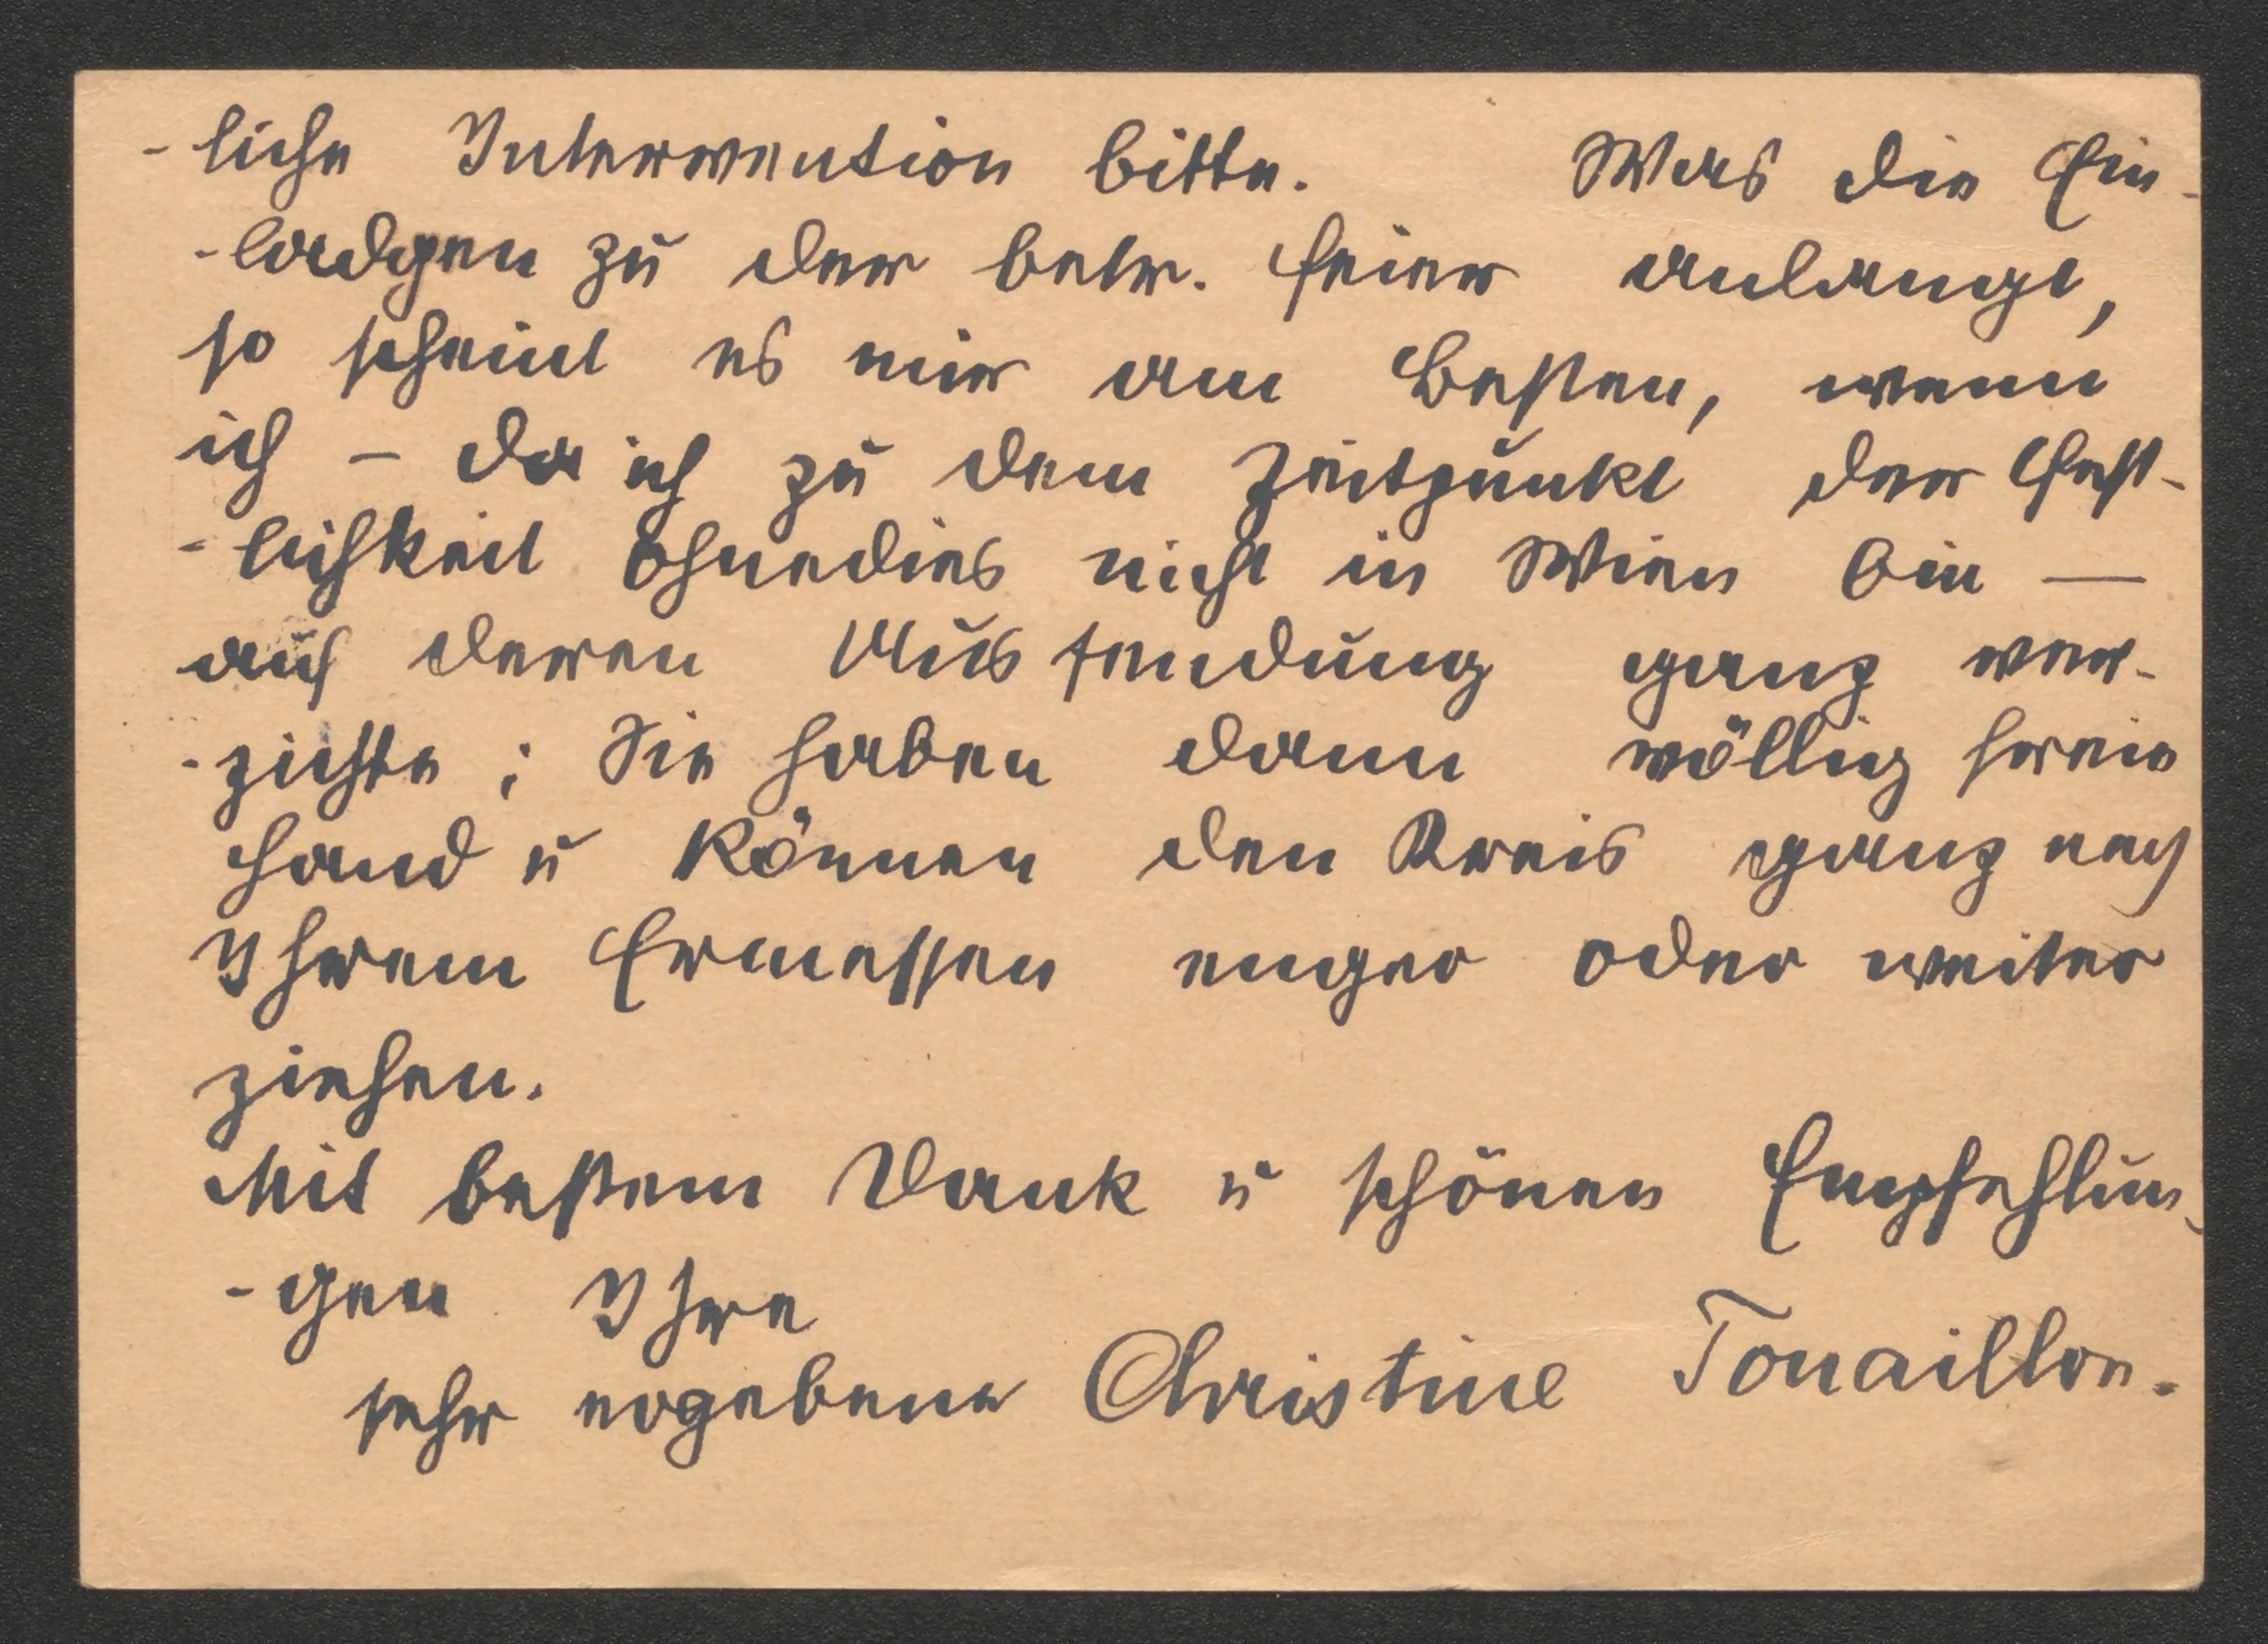 -liche Intervention bitte. Was die Ein-
-ladgen zu der betr. Feier anlangt,
so scheint es mir am Besten, wenn
ich – da ich zu dem Zeitpunkt der Fest-
-lichkeit ohnedies nicht in Wien bin —
auf deren Aussendung ganz ver-
-zichte; Sie haben dann völlig freie
Hand u können den Kreis ganz nach
Ihrem Ermessen enger oder weiter
ziehen.
Mit bestem Dank u schönen Empfehlun-
-gen Ihre
sehr ergebene Christine Touaillon.